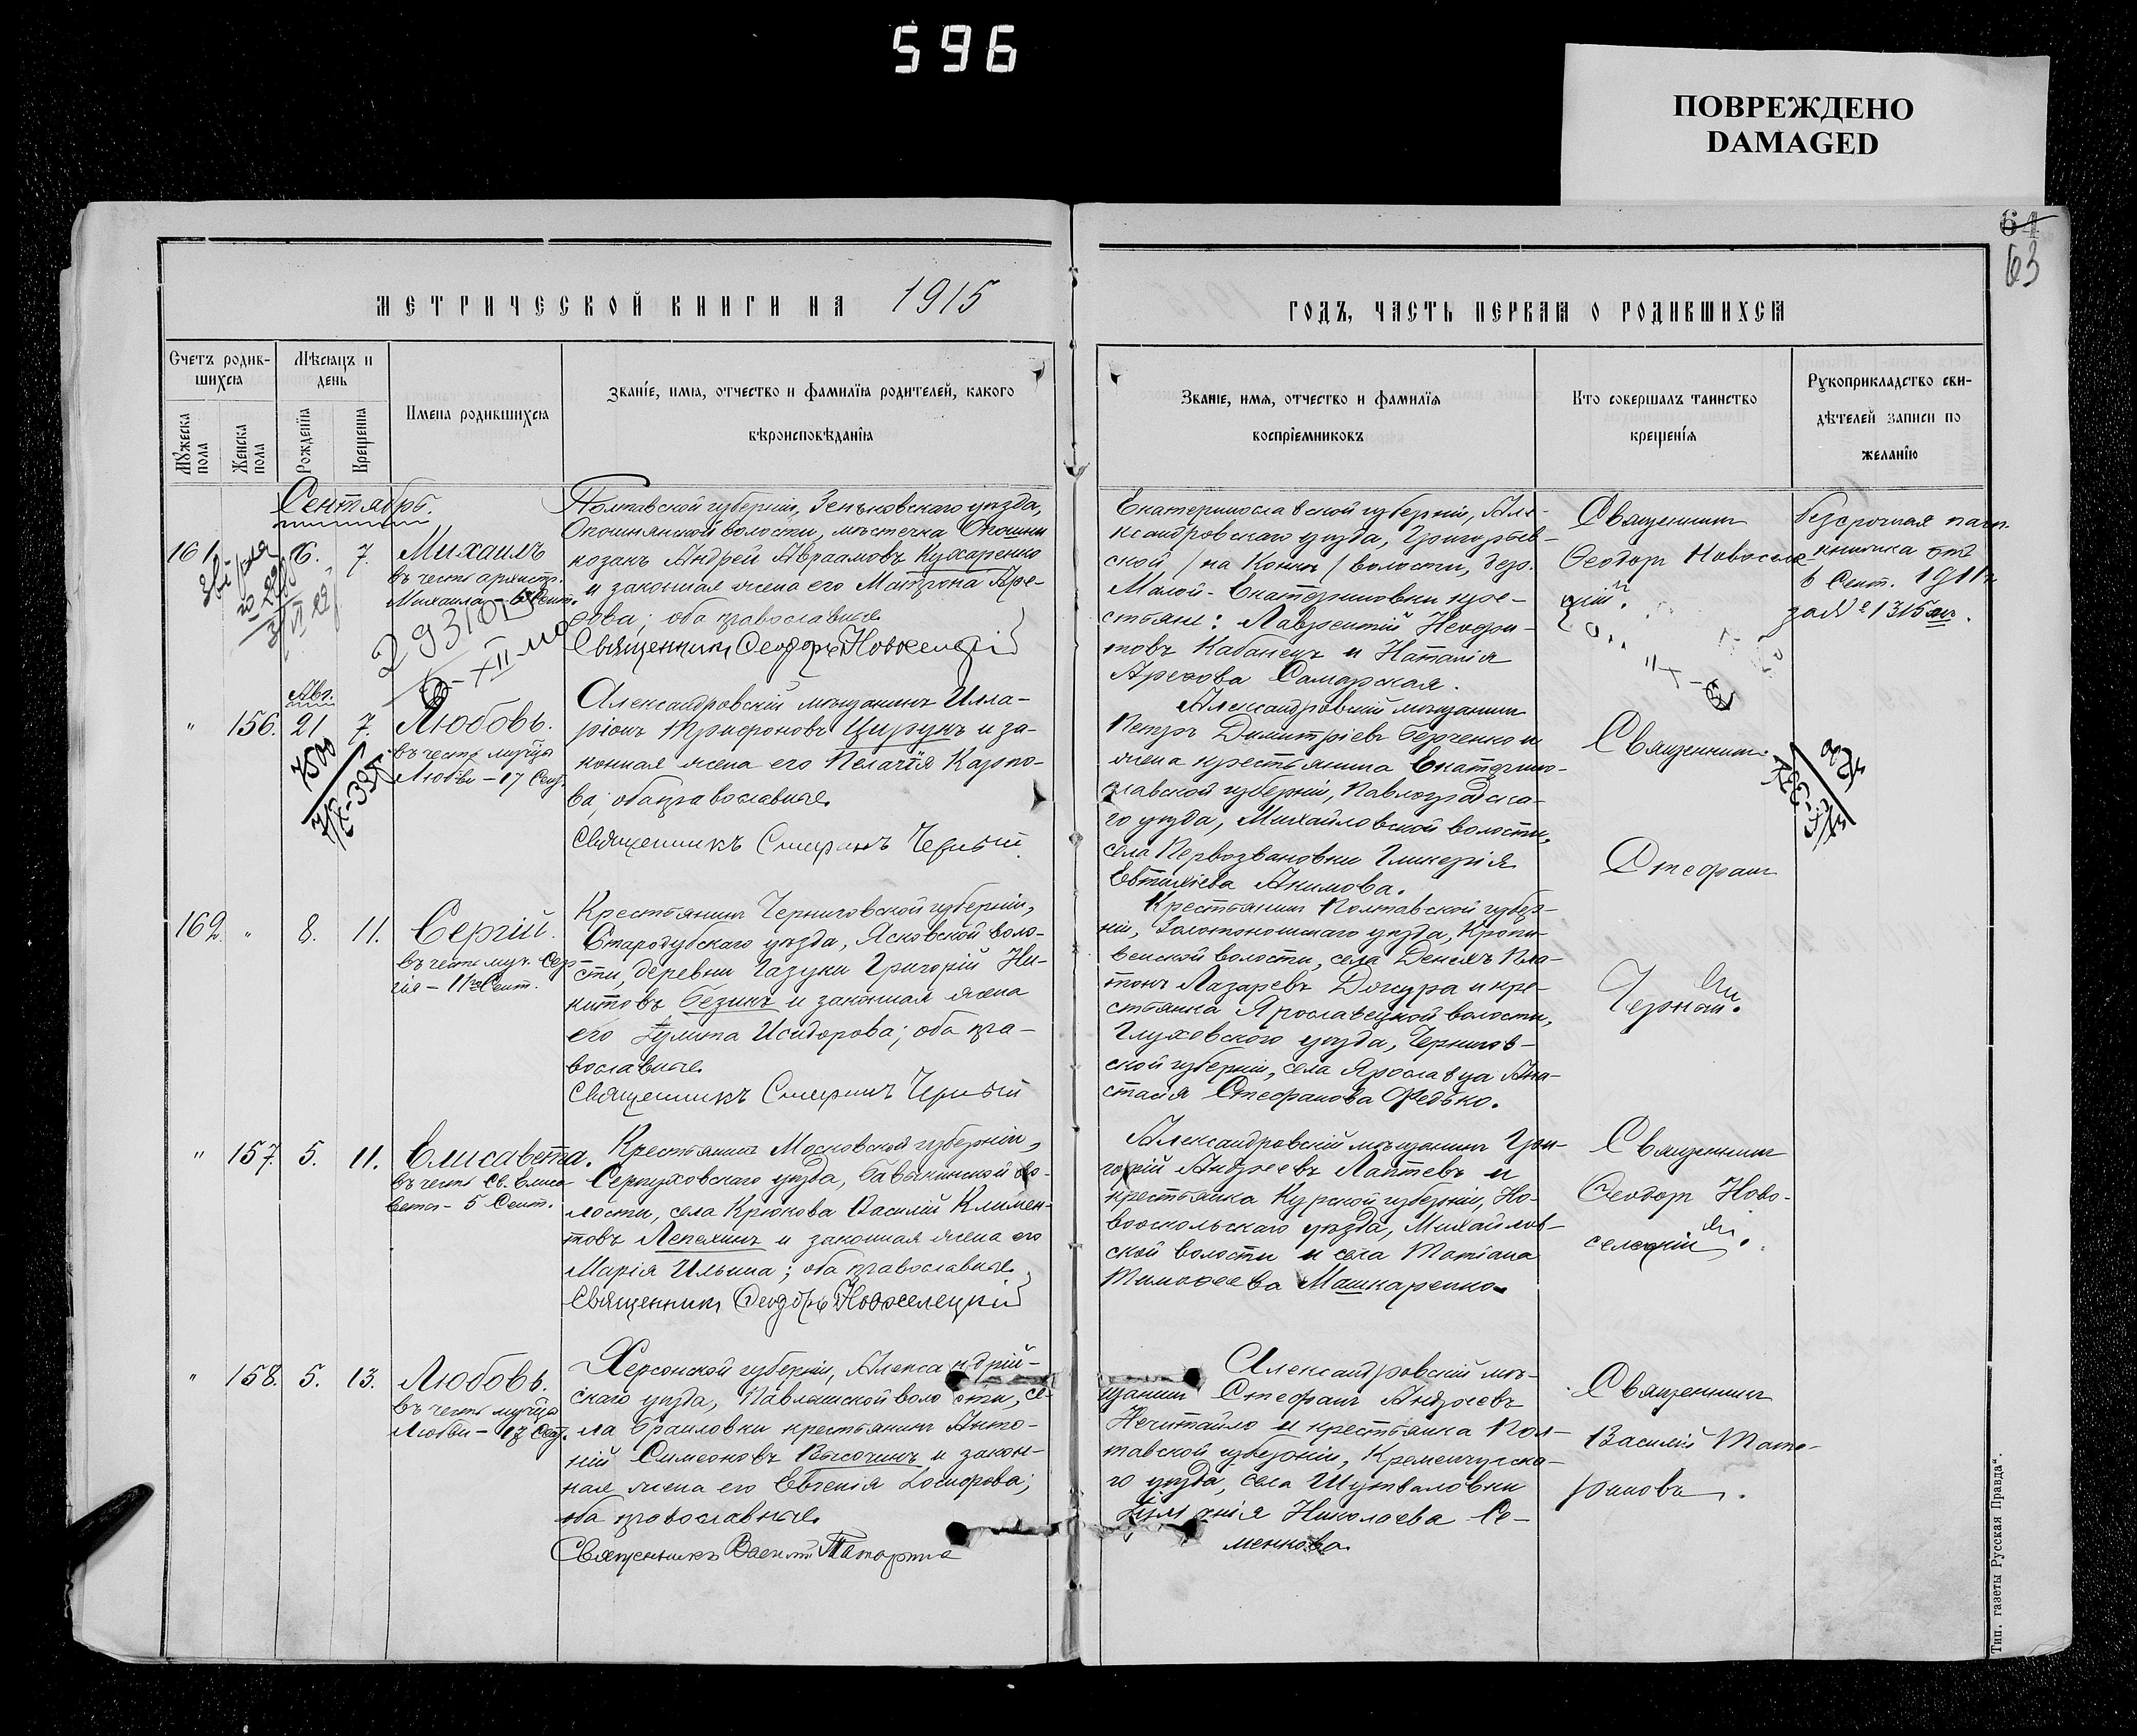 596
ПОВРЕЖДЕНО
DAMAGED
64
63
МЕТРИЧЕСКОЙ КНИГИ НА 1915
ГОДЪ, ЧАСТЬ ПЕРВАЯ О РОДИВШИХСЯ
Счетъ родив-
шихся
Мѣсяцъ и
день
Мужеска
пола
Женска
пола
Рожденїя
Крещенїя
Имена родившихся
Званіе, имя, отчество и фамилїя родителей, какого
вѣроисповѣданїя
Званіе, имя, отчество и фамилїя
воспріемниковъ
Кто совершалъ таинство
крещенїя
Рукоприкладство сви-
дѣтелей записи по
желанїю
Сентябрь.
161
6. 7.
Михаилъ
въ честь архистр.
Михаила – 6 Сент.
Полтавской губерніи, Зеньковскаго уѣзда,
Опошнянской волости, мѣстечка Опошни
козакъ Андрей Авраамовъ Кухаренко
и законная жена его Матрона Аре-
ѳова; оба православные
Священникъ Ѳеодоръ Новоселецкій
Екатеринославской губерніи, Але-
ксандровскаго уѣзда, Григорьев-
ской /на Конкѣ/ волости, дер.
Малой-Екатериновки кре-
стьяне: Лаврентій Неофи-
товъ Кабанецъ и Наталія
Ареѳова Самарская.
Священникъ
Ѳеодоръ Новоселе-
цкій.
Безсрочная пасп.
книжка отъ
6 Сент. 1911 г.
за № 1315
29310
XII
Авг.
" 156. 21 7.
7500
Любовь.
въ честь муч-ца
Любви – 17 Сент.
Александровскій мѣщанинъ Илла-
ріонъ Трифоновъ Цирунъ и за-
конная жена его Пелагія Карпо-
ва; оба православные
Священникъ Стефанъ Черный
Александровскій мѣщанинъ
Петръ Димитріевъ Берченко и
жена крестьянина Екатерино-
славской губерніи, Павлоградска-
го уѣзда, Михайловской волости,
села Первозвановки Гликерія
Евтихіева Акимова.
Священникъ
Стефанъ
Черный.
162. " 8. 11.
Сергій.
въ честь муч. Сер-
гія – 11го Сент.
Крестьянинъ Черниговской губерніи,
Стародубскаго уѣзда, Ясковской воло-
сти, деревни Газуки Григорій Ни-
китовъ Безикъ и законная жена
его Іулита Исидорова; оба пра-
вославные
Священникъ Стефанъ Черный
Крестьянинъ Полтавской губер-
ніи, Золотоношскаго уѣзда, Кропи-
венской волости, села Денегъ Пла-
тонъ Лазаревъ Джура и кре-
стьянка Ярославецкой волости,
Глуховского уѣзда, Чернигов-
ской губерніи, села Ярославца Ана-
стасія Стефанова Федько.
" 157. 5. 11.
Елисавета.
въ честь св. Елиса-
веты – 5 Сент.
Крестьянинъ Московской губерніи,
Серпуховскаго уѣзда, Бавыкинской во-
лости, села Крюкова Василій Климен-
товъ Лепехинъ и законная жена его
Марія Ильина; оба православные
Священникъ Ѳеодоръ Новоселецкій
Александровскій мѣщанинъ Гри-
горій Андреевъ Лаптевъ и
крестьянка Курской губерніи, Но-
вооскольскаго уѣзда, Михайлов-
ской волости и села Татіана
Тимоѳеева Машкаренко.
Священникъ
Ѳеодоръ Ново-
селецкій.
" 158. 5. 13.
Любовь.
въ честь муч-ца
Любви – 17 Сент.
Херсонской губерніи, Александрій-
скаго уѣзда, Павлышской волости, се-
ла Браиловки крестьянинъ Анто-
ній Симеоновъ Высочинъ и закон-
ная жена его Евгенія Іосифова;
оба православные.
Священникъ Василій
Александровскій мѣ-
щанинъ Стефанъ Андреевъ
Нечитайло и крестьянка Пол-
тавской губерніи, Кременчугска-
го уѣзда, села Шушваловки
Николаева Се-
менкова.
Священникъ
Василій Тата-
риновъ.
Тип. газеты Русская Правда".